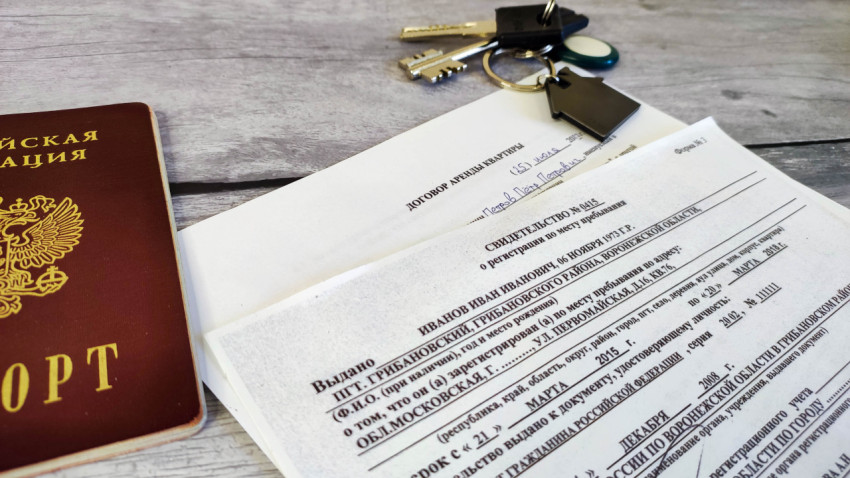 ЙСКАЯ
АЦИЯ
ОРТ
ДОГОВОР АРЕНДЫ КВАРТИРЫ
июля
Петров Пётр Петрович
Форма № 3
СВИДЕТЕЛЬСТВО № 0415
о регистрации по месту пребывания
Выдано ИВАНОВ ИВАН ИВАНОВИЧ, 06 НОЯБРЯ 1973 Г.Р.
ПГТ. ГРИБАНОВСКИЙ, ГРИБАНОВСКОГО РАЙОНА, ВОРОНЕЖСКОЙ ОБЛАСТИ.
(Ф.И.О. (при наличии), год и место рождения)
о том, что он (а) зарегистрирован (а) по месту пребывания по адресу:
ОБЛ.МОСКОВСКАЯ, Г. .......... УЛ. ПЕРВОМАЙСКАЯ, Д.16, КВ.76,
(республика, край, область, округ, район, город, пгт, село, деревня, аул улица, дом, корпус, квартира)
срок с « 21 » МАРТА 2015 г. по « 20 » МАРТА 2018 г.
ство выдано к документу, удостоверяющему личность:
Т ГРАЖДАНИНА РОССИЙСКОЙ ФЕДЕРАЦИИ , серия 20 02, № 111111
» ДЕКАБРЯ 2008 г.
РОССИИ ПО ВОРОНЕЖСКОЙ ОБЛАСТИ В ГРИБАНОВСКОМ РАЙО
наименование органа, учреждения, выдавшего документ)
регистрационного учета
ОБЛАСТИ ПО ГОРОДУ
органа регистрационно
ВА А.Н